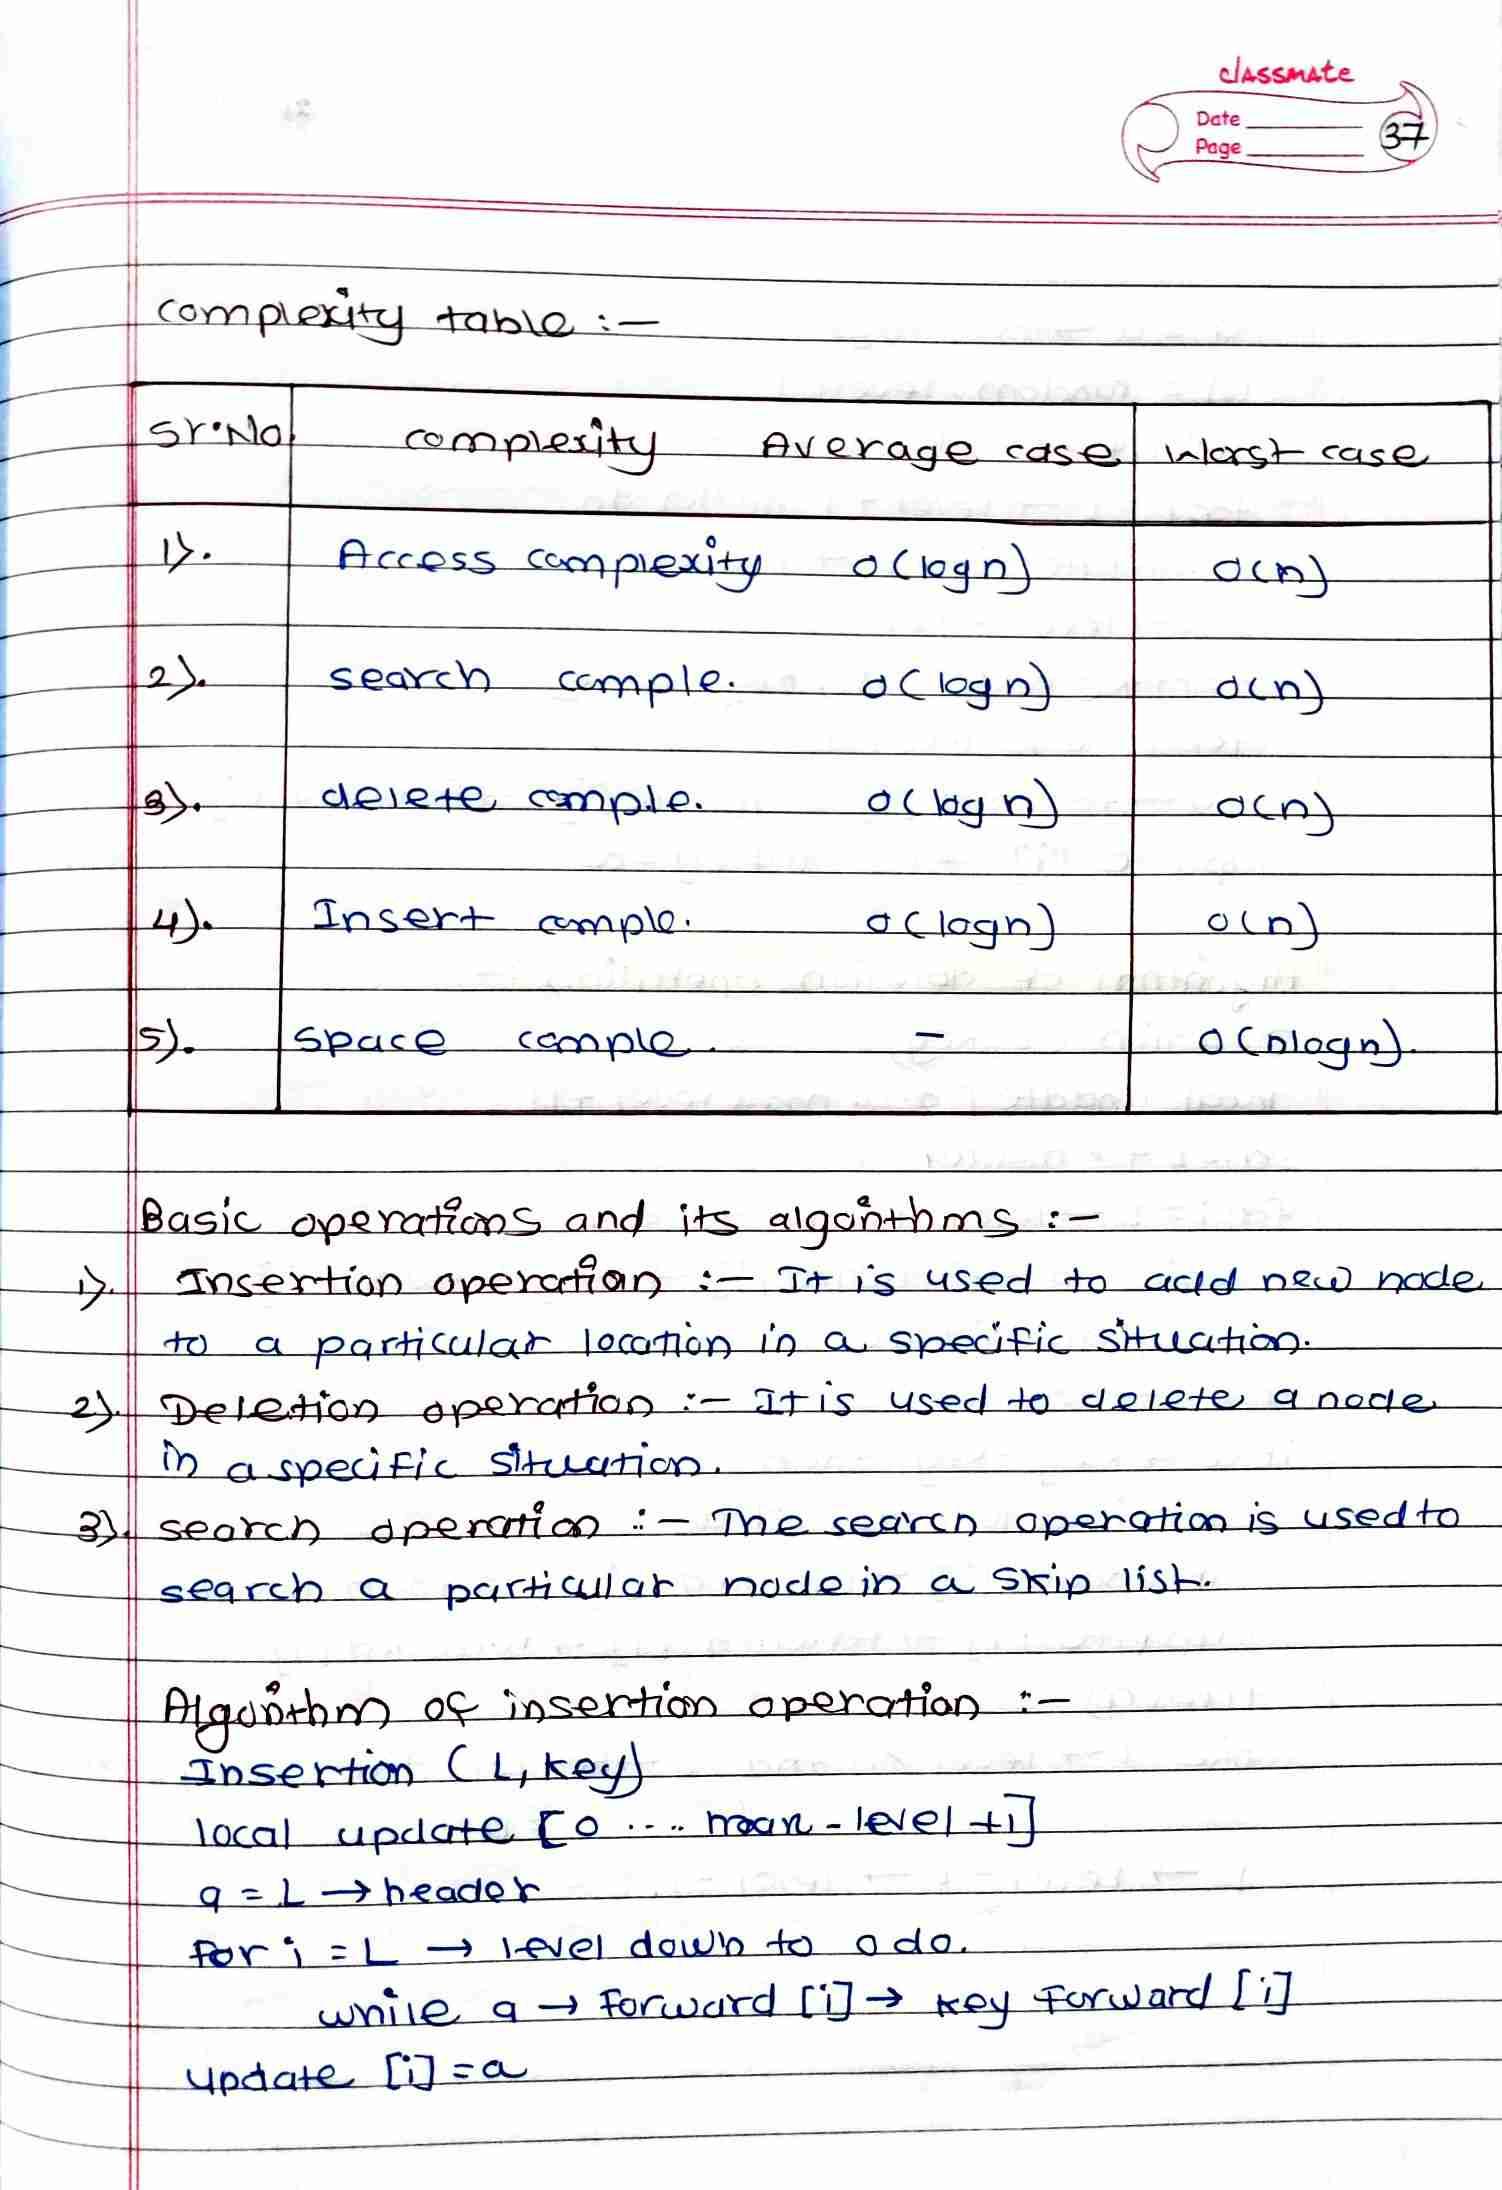 classmate
Date
Page 37
complexity table :-
Sr.No. complexity Average case Worst case
1). Access complexity O(logn) O(n)
2). search comple. O(logn) O(n)
3). delete comple. O(log n) O(n)
4). Insert comple. O(logn) O(n)
5). space comple. - O(nlogn).
Basic operations and its algorithms :-
1). Insertion operation :- It is used to add new node
to a particular location in a specific situation.
2). Deletion operation :- It is used to delete a node
in a specific situation.
3). search operation :- The search operation is used to
search a particular node in a skip list.
Algorithm of insertion operation :-
Insertion (L, key)
local update [0 .... max-level +1]
a = L → header
for i = L → level down to 0 do.
while a → forward [i] → key forward [i]
update [i] = a